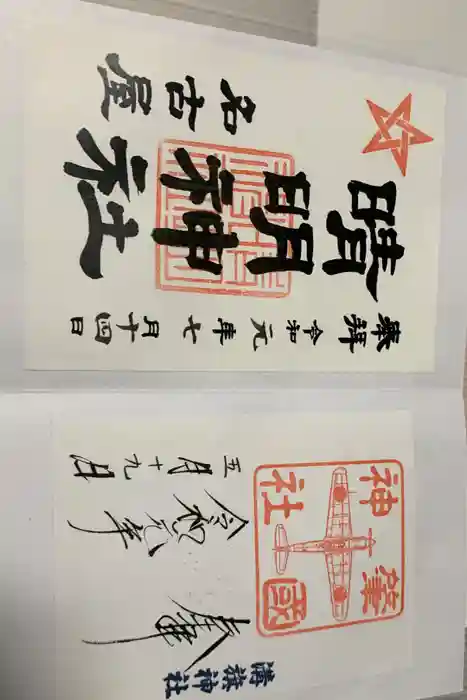 奉拝 令和元年七月十四日
晴明神社
名古屋
肇國
神社
令和元年
五月十九日